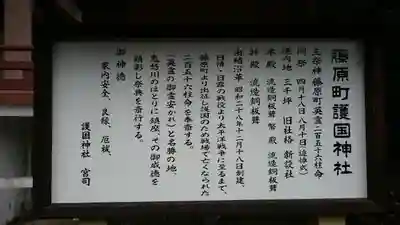 藤原町護国神社
主祭神 藤原町英霊二百五十六柱命
例祭 四月十八日 八月十日(追悼式)
境内地 三千坪 旧社格 新設社
本殿 流造銅板葺 幣殿 流造銅板葺
拝殿 流造銅板葺
由緒沿革 昭和二十八年十二月十八日創建、
日清・日露の戦役より太平洋戦争に至るまで、
藤原町より出征し護国のため戦場で亡くなられた
二百五十六柱命を奉斎する。
「英霊の御霊安かれ」と名勝の地、
鬼怒川のほとりに鎮座、その御威徳を
顕彰し祭典を斎行する。
御神徳
家内安全、良縁、厄祓、
護国神社 宮司